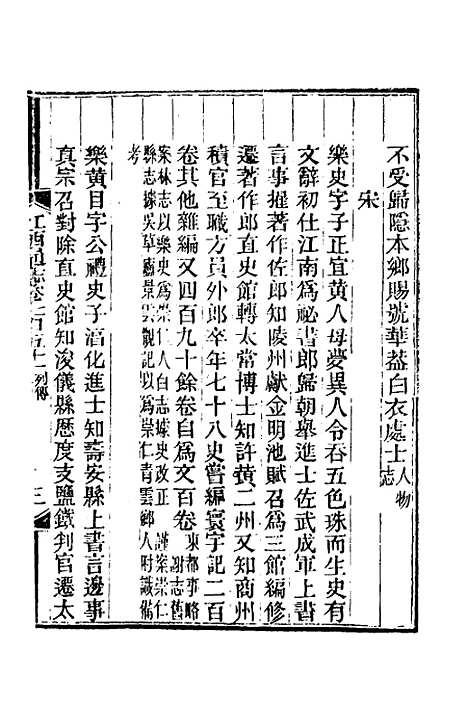 不受歸隱本鄉賜號華葢白衣處士人物志
宋
樂史字子正宜黃人母夢異人令吞五色珠而生史有
文辭初仕江南爲祕書郎歸朝舉進士佐武成軍上書
言事擢著作佐郎知陵州獻金明池賦召爲三館編修
遷著作郎直史館轉太常博士知許黃二州又知商州
積官至職方員外郎卒年七十八史嘗編寰宇記二百
卷其他雜編又四百九十餘卷自爲文百卷東都事略謝志舊
案林志以樂史爲崇仁人白志據史改正謹案崇仁
縣志據吳草廬景雲觀記以爲崇仁靑雲鄉人附識備
考
樂黃目字公禮史子淳化進士知壽安縣上書言邊事
真宗召對除直史館知浚儀縣歷度支鹽鐵判官遷太
江西通志卷一百五十一列傳
三